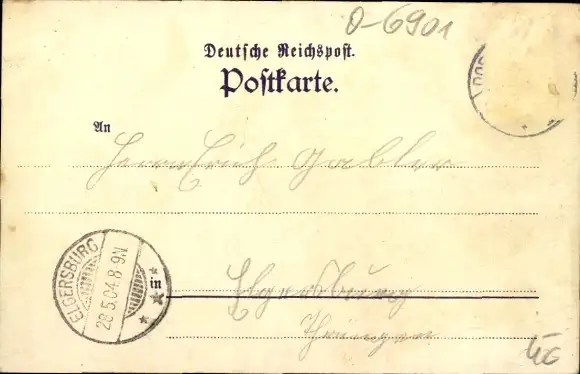 O-6901
Deutsche Reichspost.
Postkarte.
An
Herrn Erich Gabler
ELGERSBURG
28.5.04.8-9N.
in
Elgersburg
Thüringen